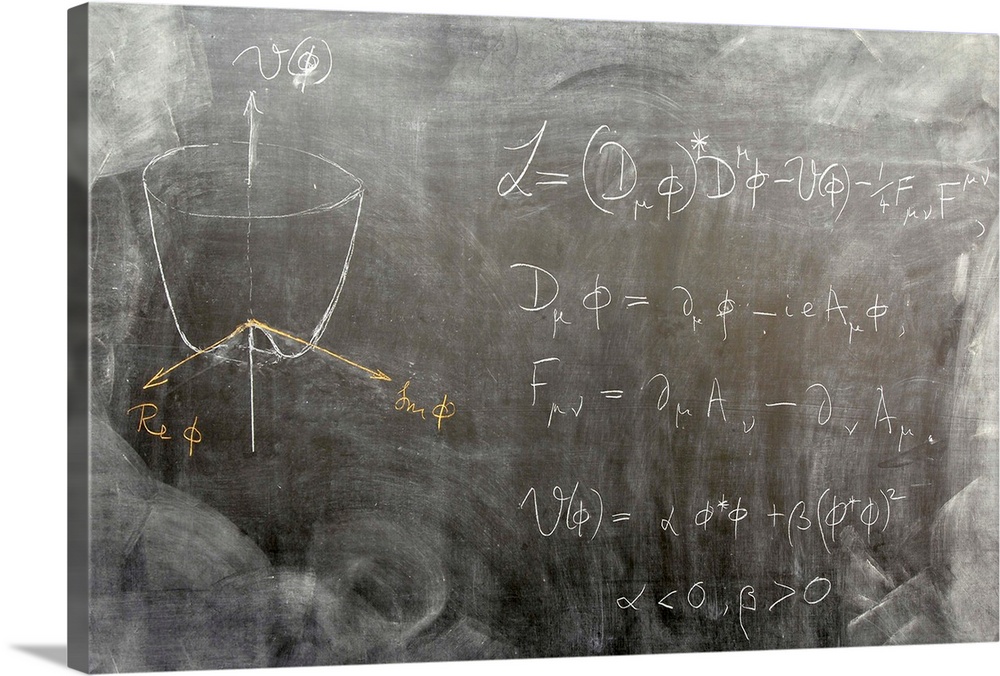 V(ϕ)
Re ϕ
Im ϕ
ℒ = (D_μ ϕ)^* D^μ ϕ - V(ϕ) - 1/4 F_μν F^μν,
D_μ ϕ = ∂_μ ϕ - ieA_μ ϕ,
F_μν = ∂_μ A_ν - ∂_ν A_μ.
V(ϕ) = α ϕ*ϕ + β(ϕ*ϕ)²
α < 0, β > 0